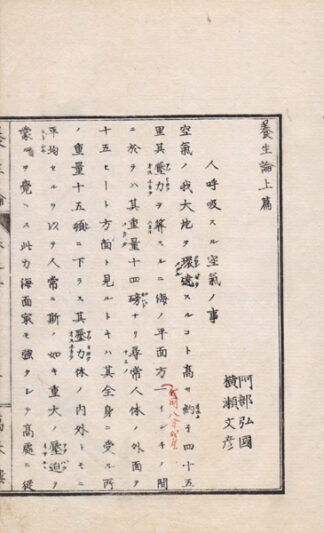 養生論上篇
阿部弘國
横瀬文彦
人呼吸スル空氣ノ事
空氣ノ我大地ヲ環遶スルコト高サ約ソ四十五
里其壓力ヲ算スルニ海ノ平面方一インキノ間
ニ於テハ其重量十四磅ナリ尋常人体ノ外面ヲ
十五セート方面ト見ルトキハ其全身ニ受ル所
ノ重量十五頓ニ下ラス其壓力体ノ内外トモニ
平均セルヲ以テ人常ニ斯ノ如キ重大ノ壓迫ヲ
蒙ルヲ覺ヘス此力海面最モ強クシテ高處ニ從